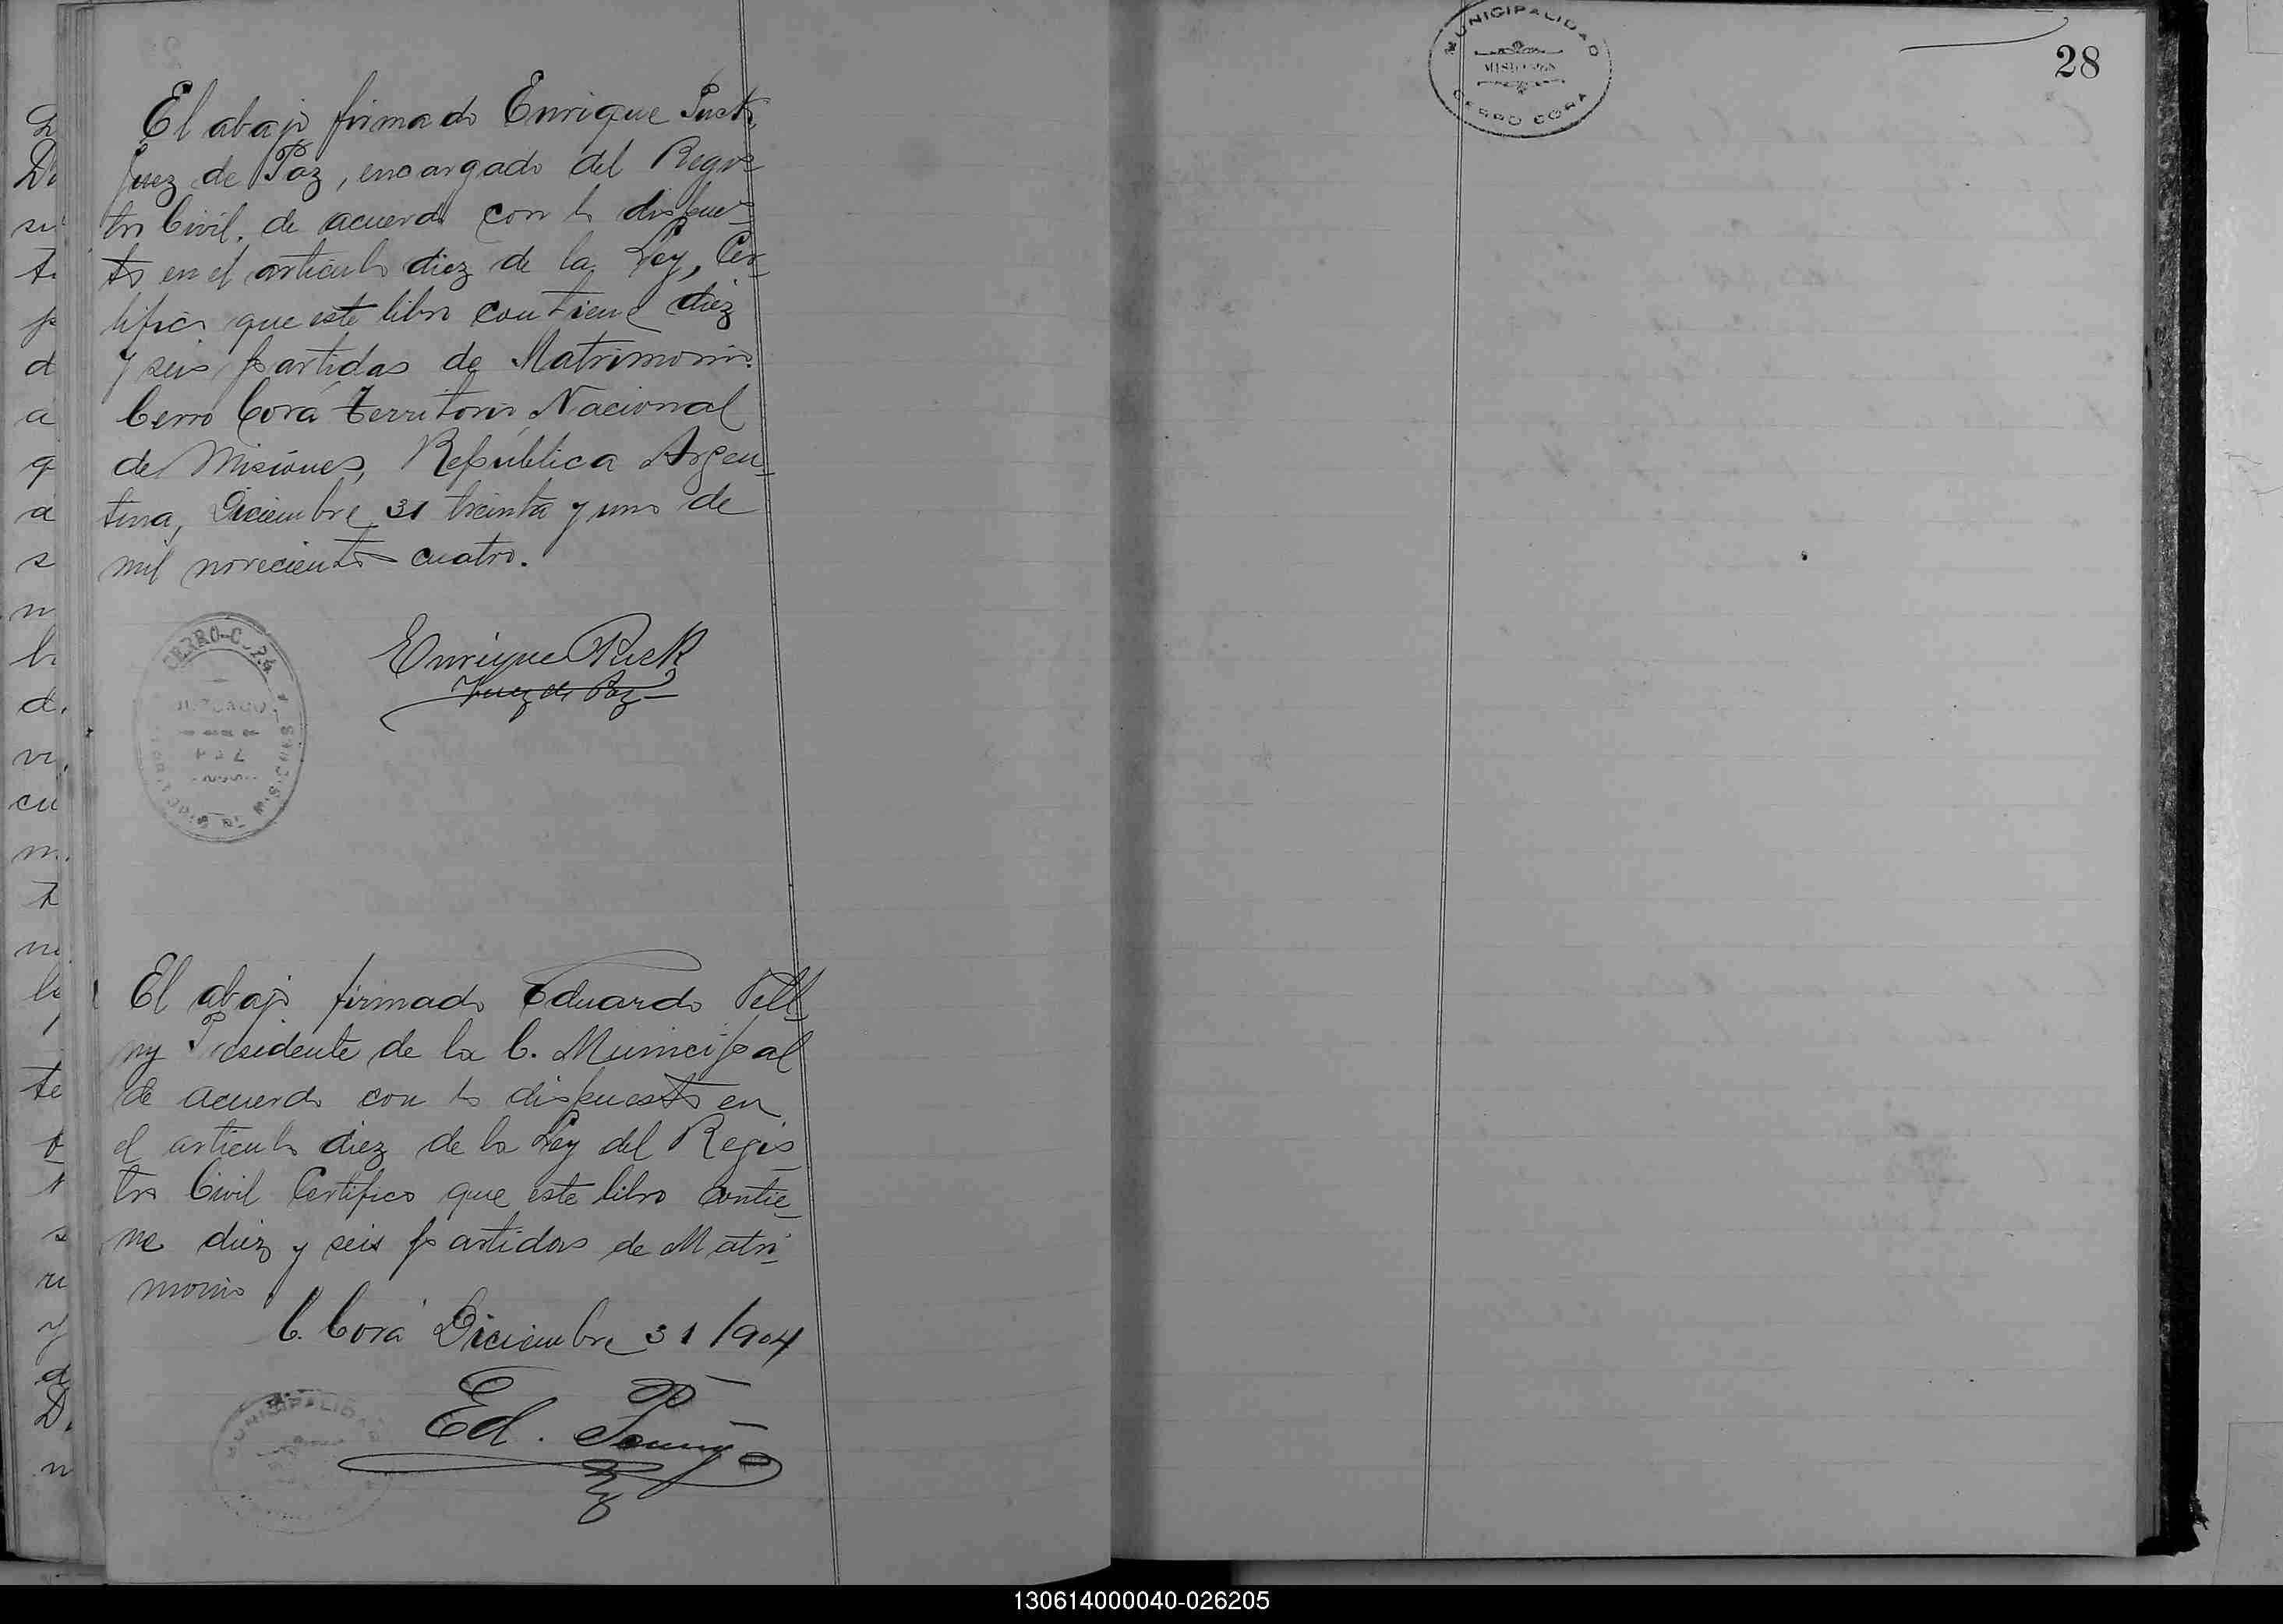 El abajo firmado Enrique Puck,
Juez de Paz, encargado del Regis-
tro Civil. de acuerdo con lo dispues-
to en el articulo diez de la Ley, Cer-
tifico que este libro contiene diez
y seis partidas de Matrimonio.
Cerro Corá Territorio Nacional
de Misiones, República Argen-
tina, Diciembre 31 treinta y uno de
mil novecientos cuatro.
Enrique Puck
Juez de Paz
CERRO-C
El abajo firmado Eduardo
Presidente de la C. Municipal
de acuerdo con lo dispuesto en
el articulo diez de la Ley del Regis-
tro Civil Certifico que este libro contie-
ne diez y seis partidas de Matri-
monio
C. Corá Diciembre 31 1904
Ed.
MUNICIPALIDAD
MUNICIPALIDAD
MISIONES
CERRO CORA
28
130614000040-026205